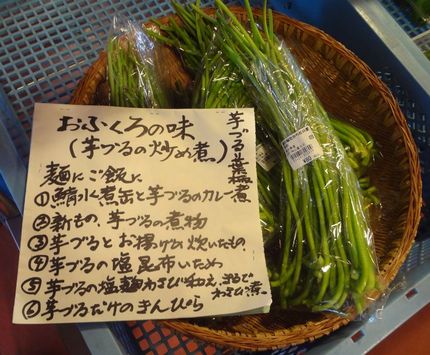 おふくろの味
(芋づるの炒め煮)
芋づる葉梅煮
麺にご飯に
①鯖水煮缶と芋づるのカレー煮
②新もの、芋づるの煮物
③芋づるとお揚げの炊いたもの
④芋づるの塩昆布いため
⑤芋づるの塩麹わさび和え、まるでわさび煮
⑥芋づるだけのきんぴら